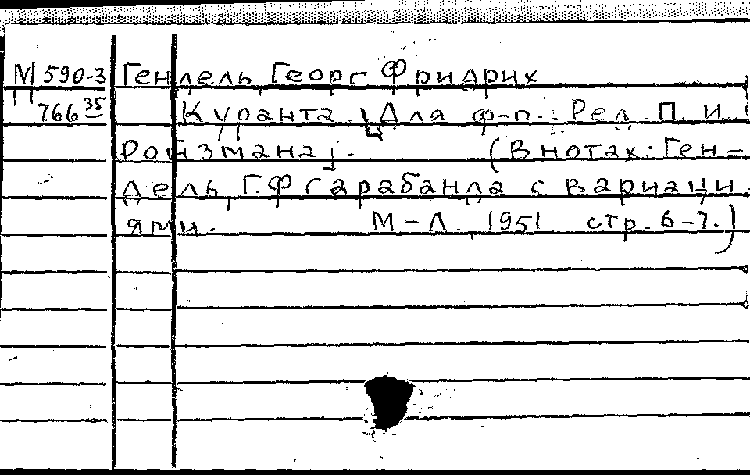 М 590-3 Гендель, Георг Фридрих
766 35 Куранта. [Для ф-п. Ред. П. И.
Ройзмана]. (В нотах: Ген-
дель, Г.Ф Сарабанда с вариаци
ями. М-Л, 1951 стр. 6-7.)